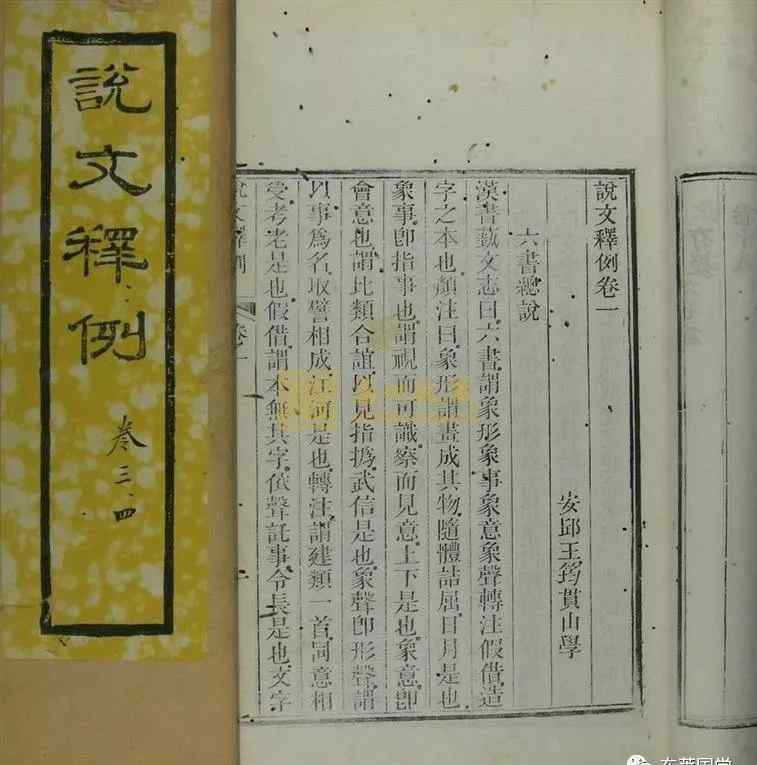 說文釋例
卷三、四
說文釋例卷一
安邱王筠貫山學
六書總說
漢書藝文志曰六書謂象形象事象意象聲轉注假借造
字之本也顏注曰象形謂畫成其物隨體詰屈日月是也
象事卽指事也謂視而可識察而見意上下是也象意卽
會意也謂比類合誼以見指撝武信是也象聲卽形聲謂
以事爲名取譬相成江河是也轉注謂建類一首同意相
受考老是也假借謂本無其字依聲託事令長是也文字
說文釋例 卷一